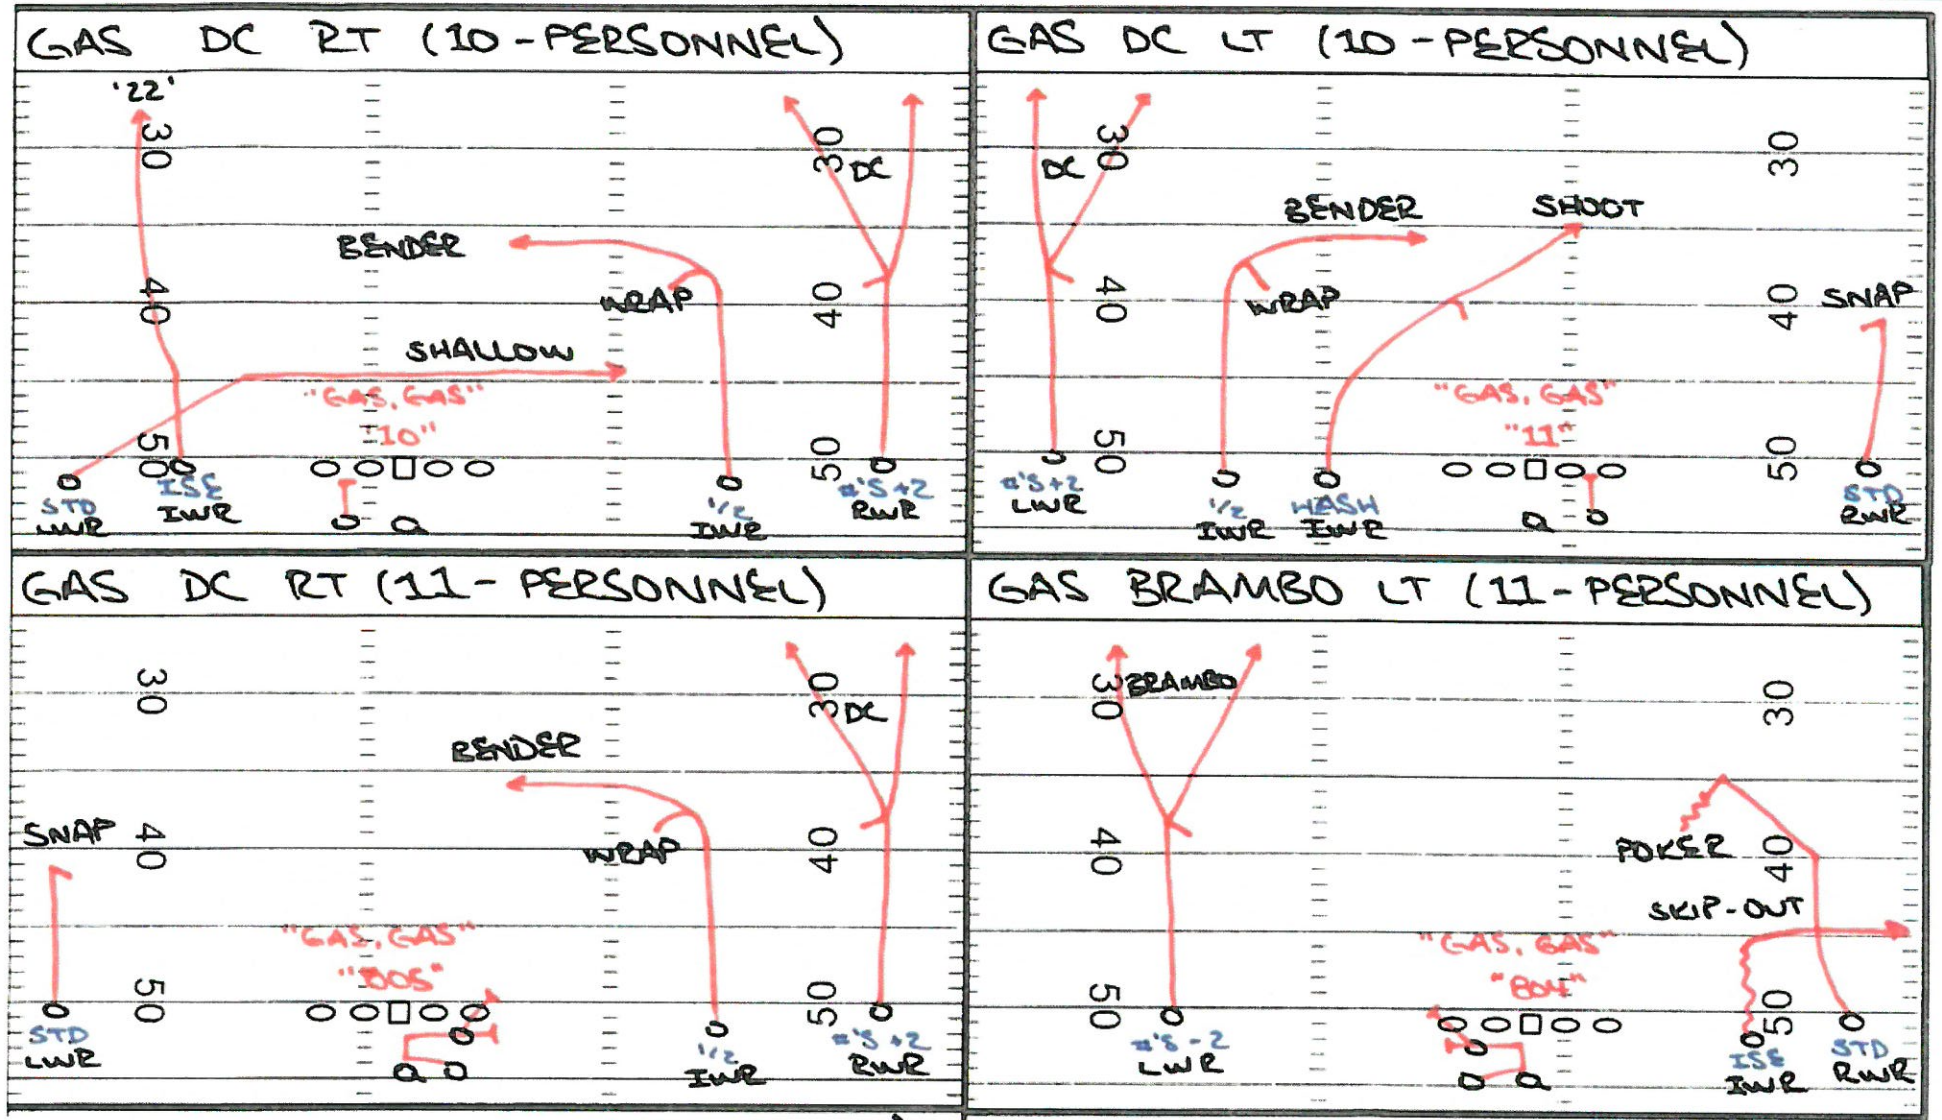 GAS DC RT (10-PERSONNEL)
'22'
30
30
DC
BENDER
WRAP
40
40
SHALLOW
"GAS, GAS"
"10"
50
50
STD
LWR
ISE
IWR
1/2
IWR
#'S+2
RWR
GAS DC LT (10-PERSONNEL)
30
30
DC
BENDER
SHOOT
WRAP
40
40
SNAP
"GAS, GAS"
"11"
50
50
#'S+2
LWR
1/2
IWR
HASH
IWR
STD
RWR
GAS DC RT (11-PERSONNEL)
30
30
DC
BENDER
SNAP
40
WRAP
40
"GAS, GAS"
"805"
50
50
STD
LWR
1/2
IWR
#'S+2
RWR
GAS BRAMBO LT (11-PERSONNEL)
30
BRAMBO
30
POKER
40
40
SKIP-OUT
"GAS, GAS"
"804"
50
50
#'S-2
LWR
ISE
IWR
STD
RWR